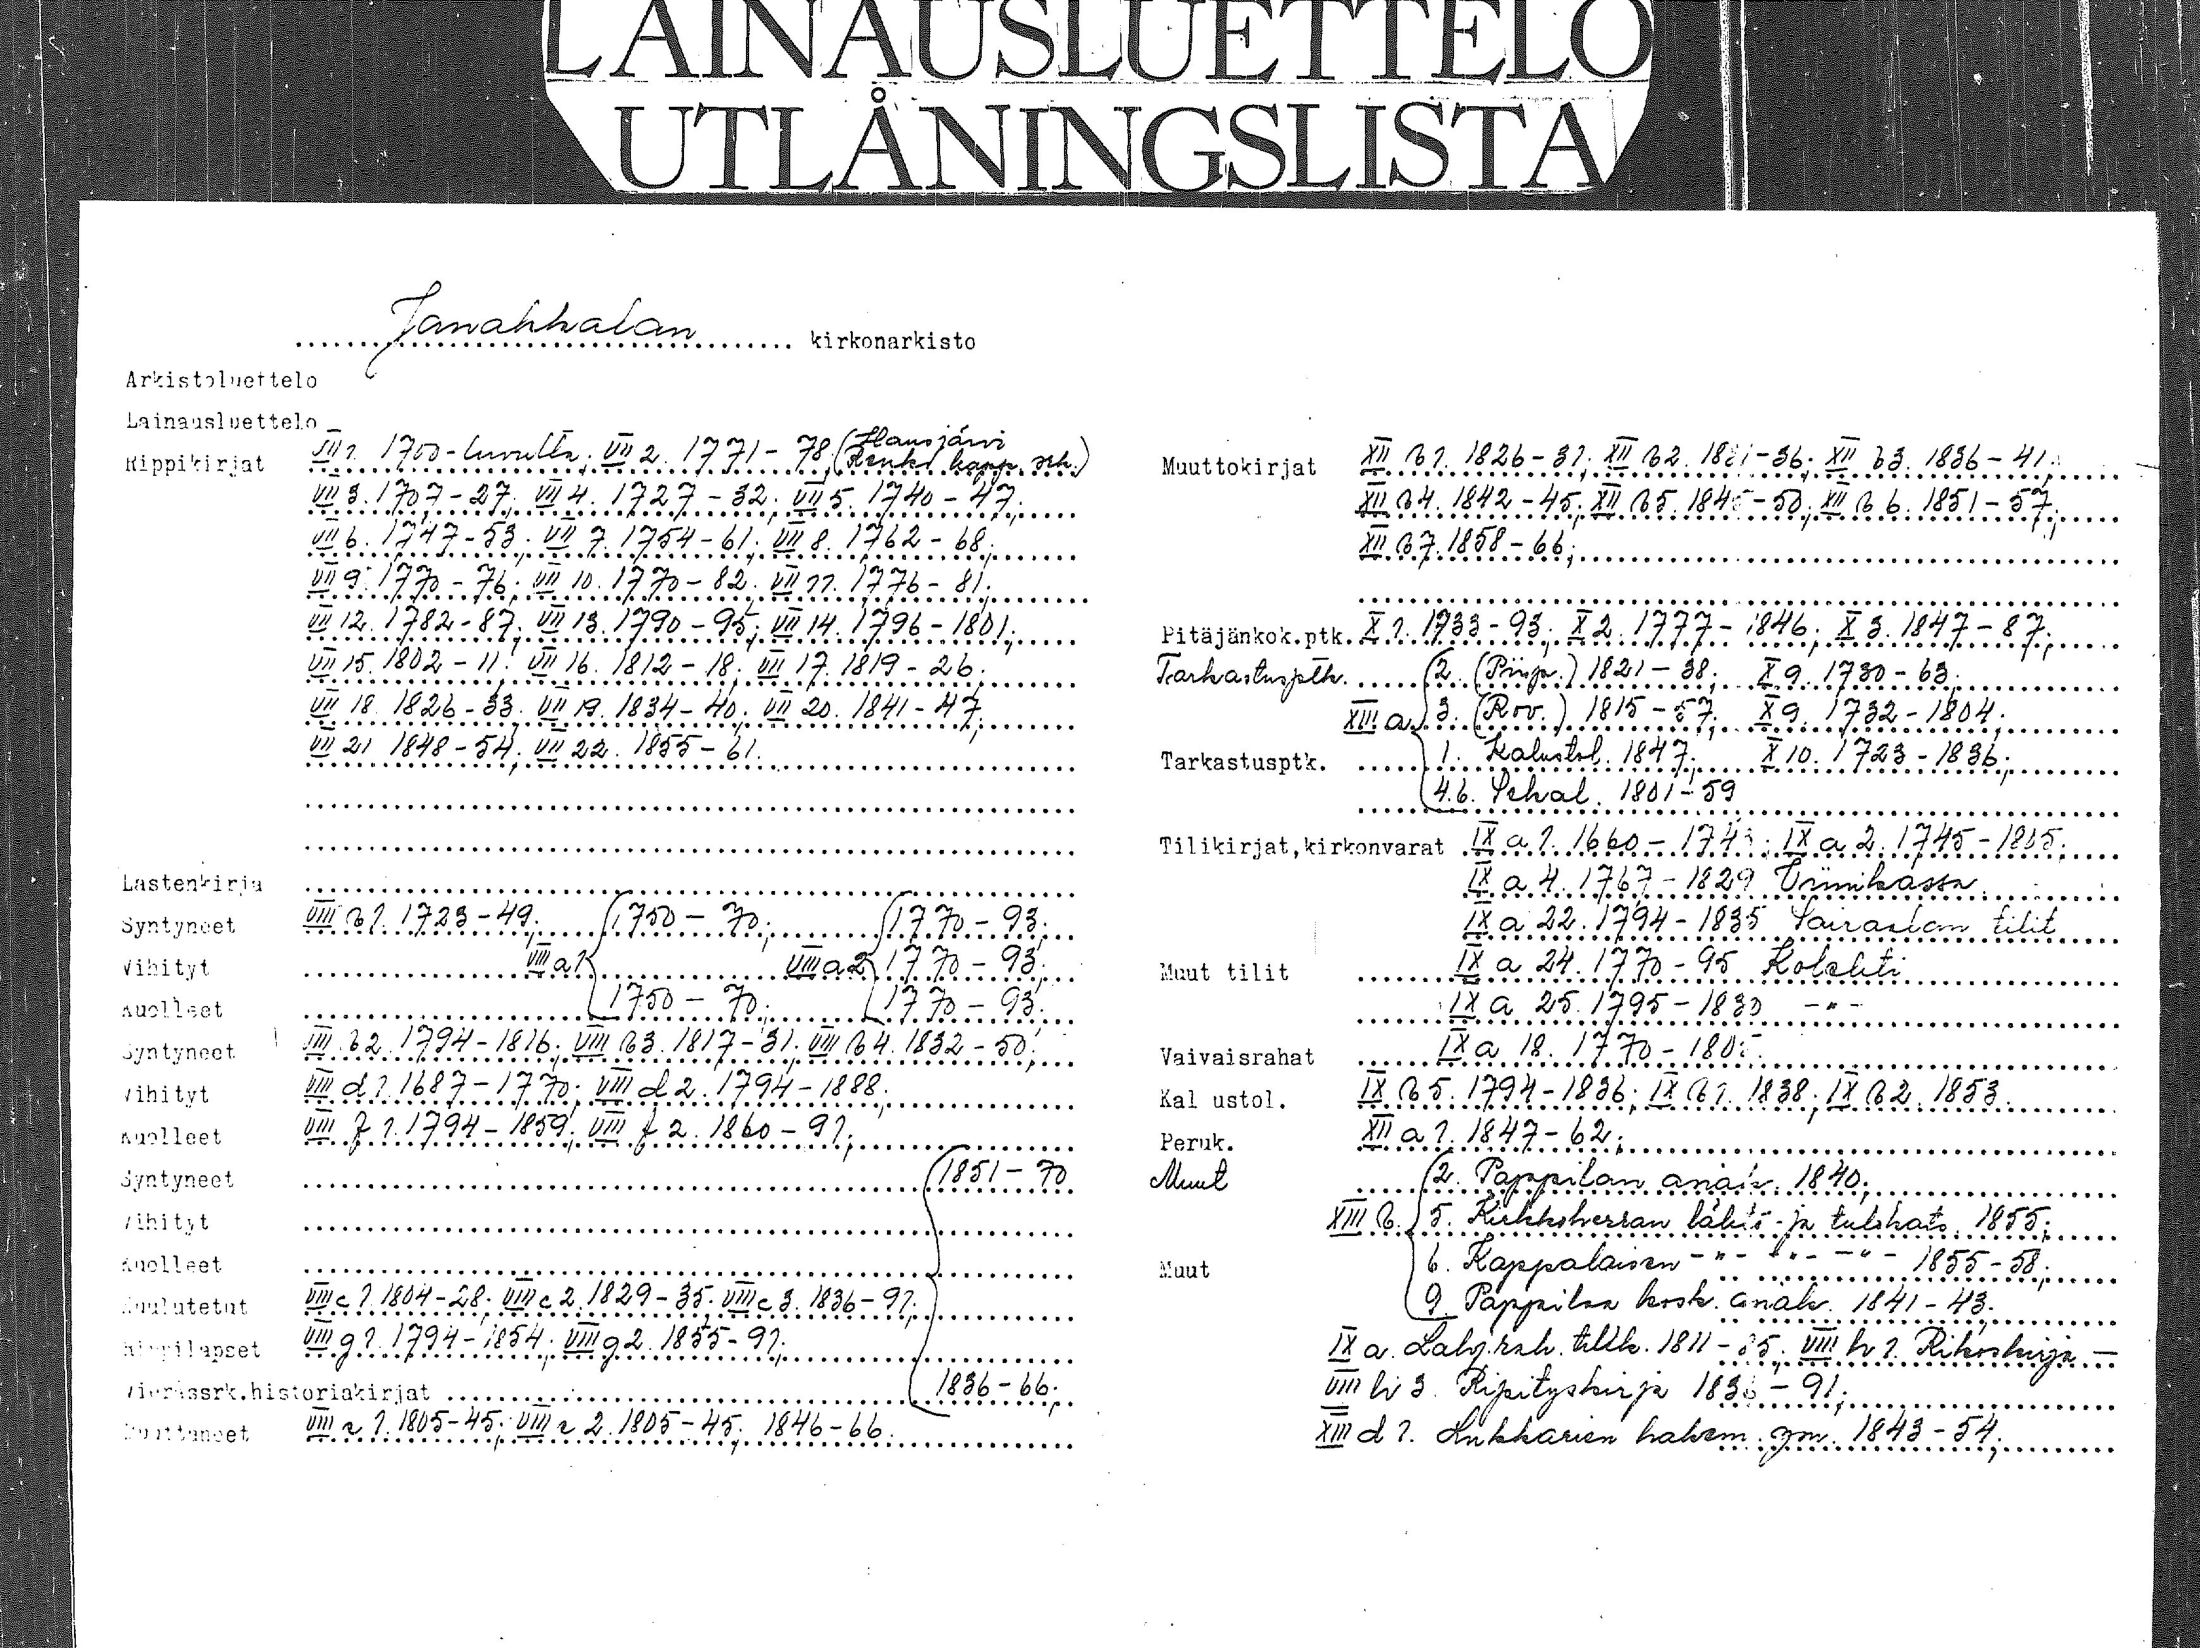 LAINAUSLUETTELO
UTLÅNINGSLISTA
Janakkalan kirkonarkisto
Arkistoluettelo
Lainausluettelo
Rippikirjat VII 1. 1700-luvulta; VII 2. 1771-78 (Hausjärvi
kapp. srk.)
VII 3. 1707-27; VII 4. 1727-32; VII 5. 1740-47;
VII 6. 1747-53; VII 7. 1754-61; VII 8. 1762-68;
VII 9. 1770-76; VII 10. 1770-82; VII 11. 1776-81;
VII 12. 1782-87; VII 13. 1790-95; VII 14. 1796-1801;
VII 15. 1802-11; VII 16. 1812-18; VII 17. 1819-26;
VII 18. 1826-33; VII 19. 1834-40; VII 20. 1841-47;
VII 21 1848-54; VII 22. 1855-61.
Lastenkirja
Syntyneet VIII b 1. 1723-49; 1750-70; 1770-93;
Vihityt VIII a 1 VIII a 2 1770-93;
Kuolleet 1750-70; 1770-93;
Syntyneet VIII b 2. 1794-1816; VIII b 3. 1817-31; VIII b 4. 1832-50;
Vihityt VIII d 1. 1687-1770; VIII d 2. 1794-1888;
Kuolleet VIII f 1. 1794-1859; VIII f 2. 1860-91;
Syntyneet 1851-70
Vihityt
Kuolleet
Kuulutetut VIII c 1. 1804-28; VIII c 2. 1829-35; VIII c 3. 1836-91;
Rippilapset VIII g 1. 1794-1854; VIII g 2. 1855-91;
Vierassrk.historiakirjat 1836-66;
Muuttaneet 1. 1805-45; 2. 1805-45; 1846-66.
Muuttokirjat XII b 1. 1826-31; XII b 2. -36; XII b 3. 1836-41;
XII b 4. 1842-45; XII b 5. -50; XII b 6. 1851-57;
XII b 7. 1858-66;
Pitäjänkok.ptk. X 1. 1733-93; X 2. 1777-1846; X 3. 1847-87;
Tarkastusptk. 2. (Piisp.) 1821-38; X 9. 1730-63;
XIII a 3. (Rov.) 1815-57; X 9. 1732-1804;
Tarkastusptk. 1. Kalustol. 1847; X 10. 1723-1836;
4.6. Sekal. 1801-59
Tilikirjat,kirkonvarat IX a 1. 1660- ; IX a 2. 1745-1815;
IX a 4. 1767-1829 Viinikassa
IX a 22. 1794-1835 Sairaalan tilit
Muut tilit IX a 24. 1770-95 Kolehti
IX a 25. 1795-1830 -"-
Vaivaisrahat IX a 18. 1770-
Kalustol. IX b 5. 1794-1836; IX b 1. 1838; IX b 2. 1853.
Peruk. XII a 1. 1847-62;
Muut 2. Pappilan asiak. 1840;
XIII b. 5. Kirkkoherran lähtö- ja tulokats. 1855;
Muut 6. Kappalaisen -"- -"- -"- 1855-58;
9. Pappilaa kosk. asiak. 1841-43.
IX a. Lahj.rah. tilik. 1811- ; VIII h 1. Rikoskirja -
VIII h 3. Ripityskirja -91;
XIII d 1. Lukkarien hakem. ym. 1843-54;